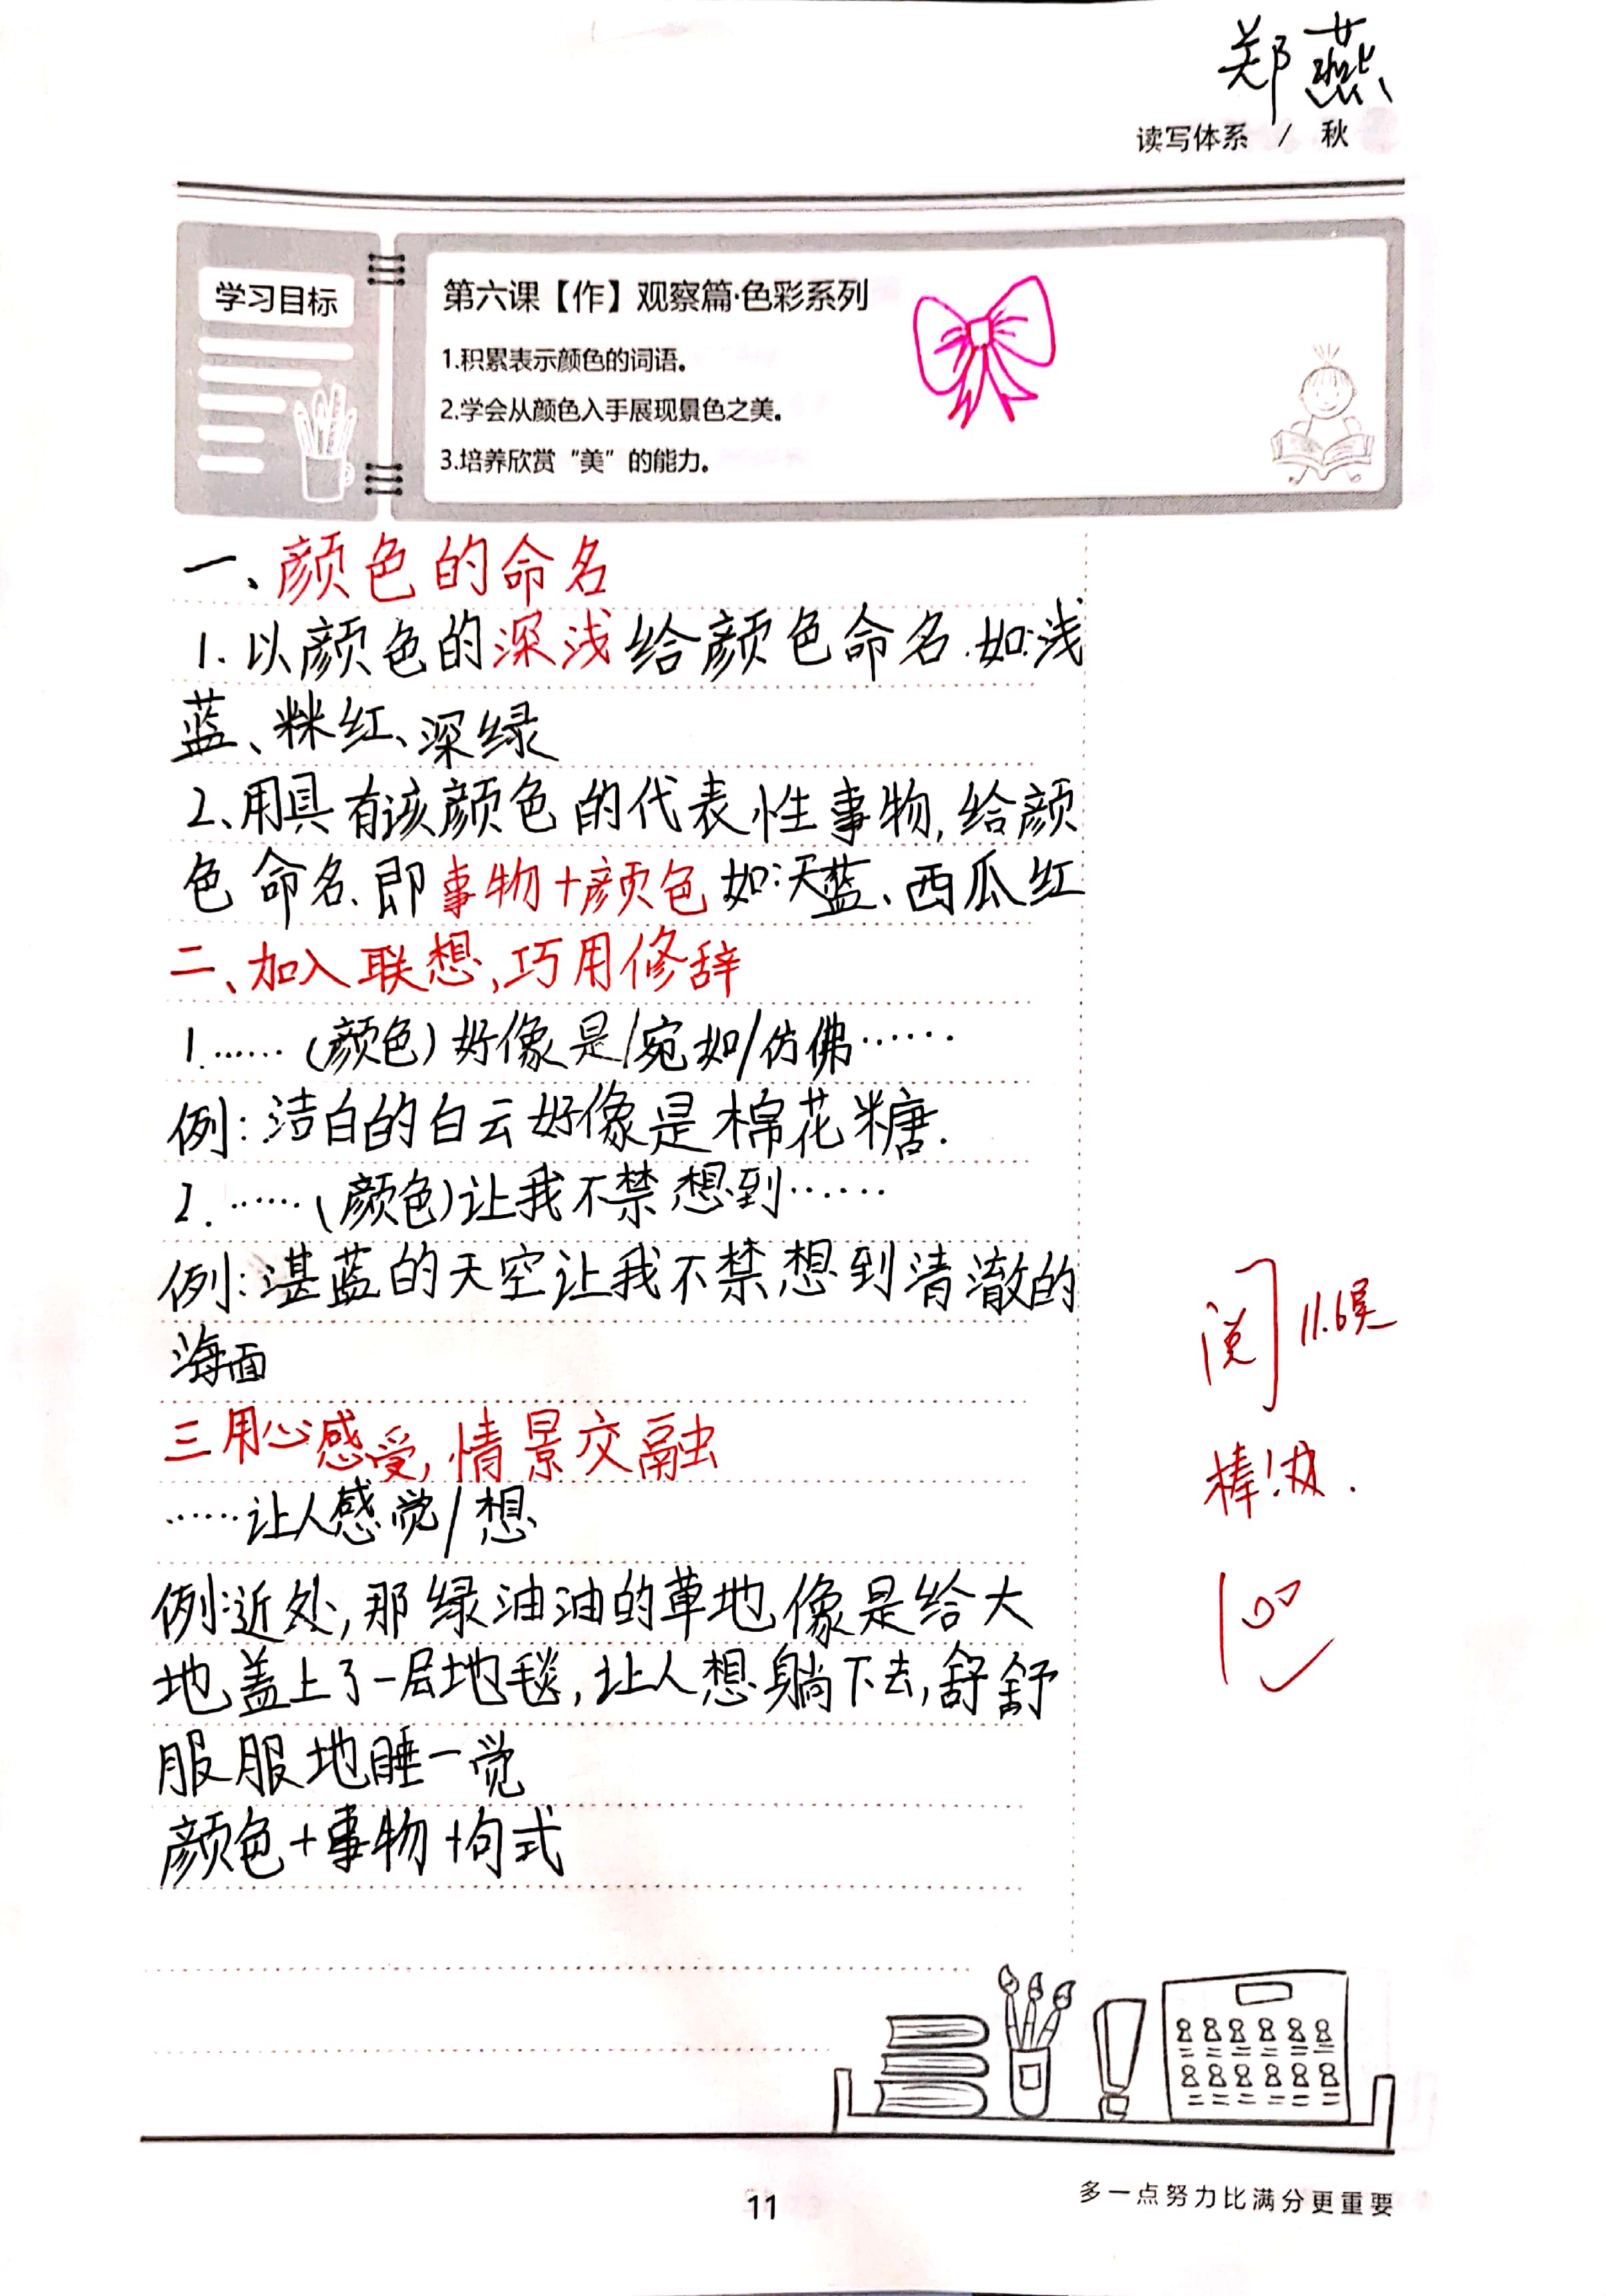 郑燕
读写体系 / 秋
学习目标
第六课【作】观察篇·色彩系列
1.积累表示颜色的词语。
2.学会从颜色入手展现景色之美。
3.培养欣赏“美”的能力。
一、颜色的命名
1.以颜色的深浅给颜色命名.如:浅
蓝、粉红、深绿
2、用具有该颜色的代表性事物,给颜
色命名.即事物+颜色如:天蓝、西瓜红
二、加入联想,巧用修辞
1.……(颜色)好像是/宛如/仿佛……
例:洁白的白云好像是棉花糖.
2.……(颜色)让我不禁想到……
例:湛蓝的天空让我不禁想到清澈的
海面
三用心感受,情景交融
……让人感觉/想
例:近处,那绿油油的草地像是给大
地盖上了一层地毯,让人想躺下去,舒舒
服服地睡一觉
颜色+事物+句式
阅 11.6
棒!
100
11
多一点努力比满分更重要